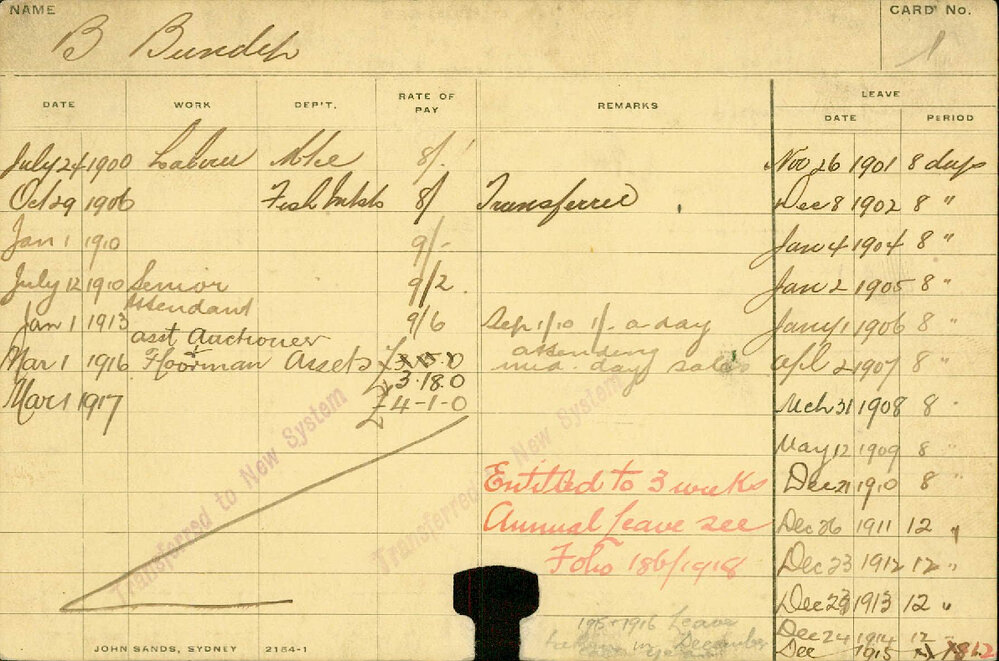 NAME
B Bundep
CARD No.
1
DATE WORK DEP'T. RATE OF PAY REMARKS LEAVE
DATE PERIOD
July 24 1900 Labour Mke 8/. Nov 26 1901 8 days
Oct 29 1906 Fish Mkts 8/ Transferred Dec 8 1902 8 "
Jan 1 1910 9/- Jan 4 1904 8 "
July 12 1910 Senior Attendant 9/2 Jan 2 1905 8 "
Jan 1 1913 9/6 Sep 1/10 1/. a day Jany 1 1906 8 "
asst Auctioneer
Mar 1 1916 + Floorman Assets £3.15.0 attending mid. day sales Apl 2 1907 8 "
£3.18.0
Mar 1 1917 £4-1-0 Mch 31 1908 8 "
May 12 1909 8 "
Entitled to 3 weeks Dec 21 1910 8 "
Annual Leave see Dec 26 1911 12 "
Folio 186/1918 Dec 23 1912 12 "
Dec 29 1913 12 "
1915+1916 Leave Dec 24 1914 12 "
taken in December Dec 1915 1812
Transferred to New System
Transferred to New System
JOHN SANDS, SYDNEY 2154-1